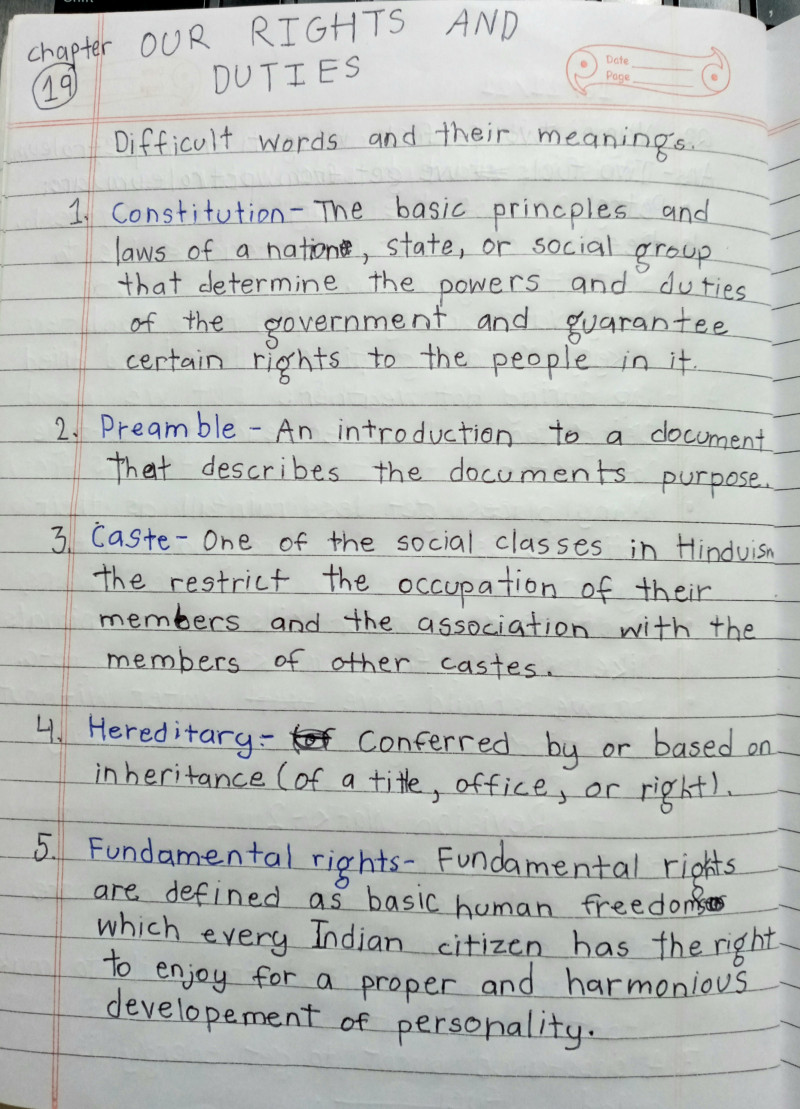 chapter OUR RIGHTS AND
19 DUTIES
Date
Page
Difficult words and their meanings.
1. Constitution - The basic princples and
laws of a natione, state, or social group
that determine the powers and duties
of the government and guarantee
certain rights to the people in it.
2. Preamble - An introduction to a document
that describes the documents purpose.
3. Caste - One of the social classes in Hinduism
the restrict the occupation of their
members and the association with the
members of other castes.
4. Hereditary:- Conferred by or based on
inheritance (of a title, office, or right).
5. Fundamental rights - Fundamental rights
are defined as basic human freedoms
which every Indian citizen has the right
to enjoy for a proper and harmonious
developement of personality.